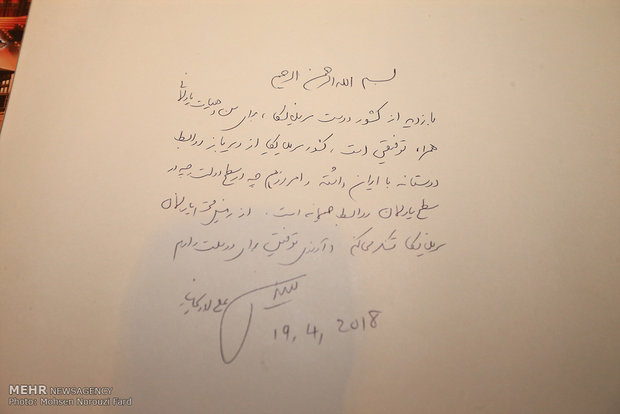 بسم الله الرحمن الرحیم
بازدید از کشور دوست سریلانکا، برای من و هیئت پارلمانی
همراه توفیقی است. کشور سریلانکا از دیرباز روابط
دوستانه با ایران داشته و امروز هم چه در سطح دولت و چه در
سطح پارلمان روابط صمیمانه است. از رئیس محترم پارلمان
سریلانکا تشکر می‌کنم و آرزوی توفیق برای دو ملت دارم
علی لاریجانی
19, 4, 2018
MEHR NEWSAGENCY
Photo: Mohsen Norouzi Fard